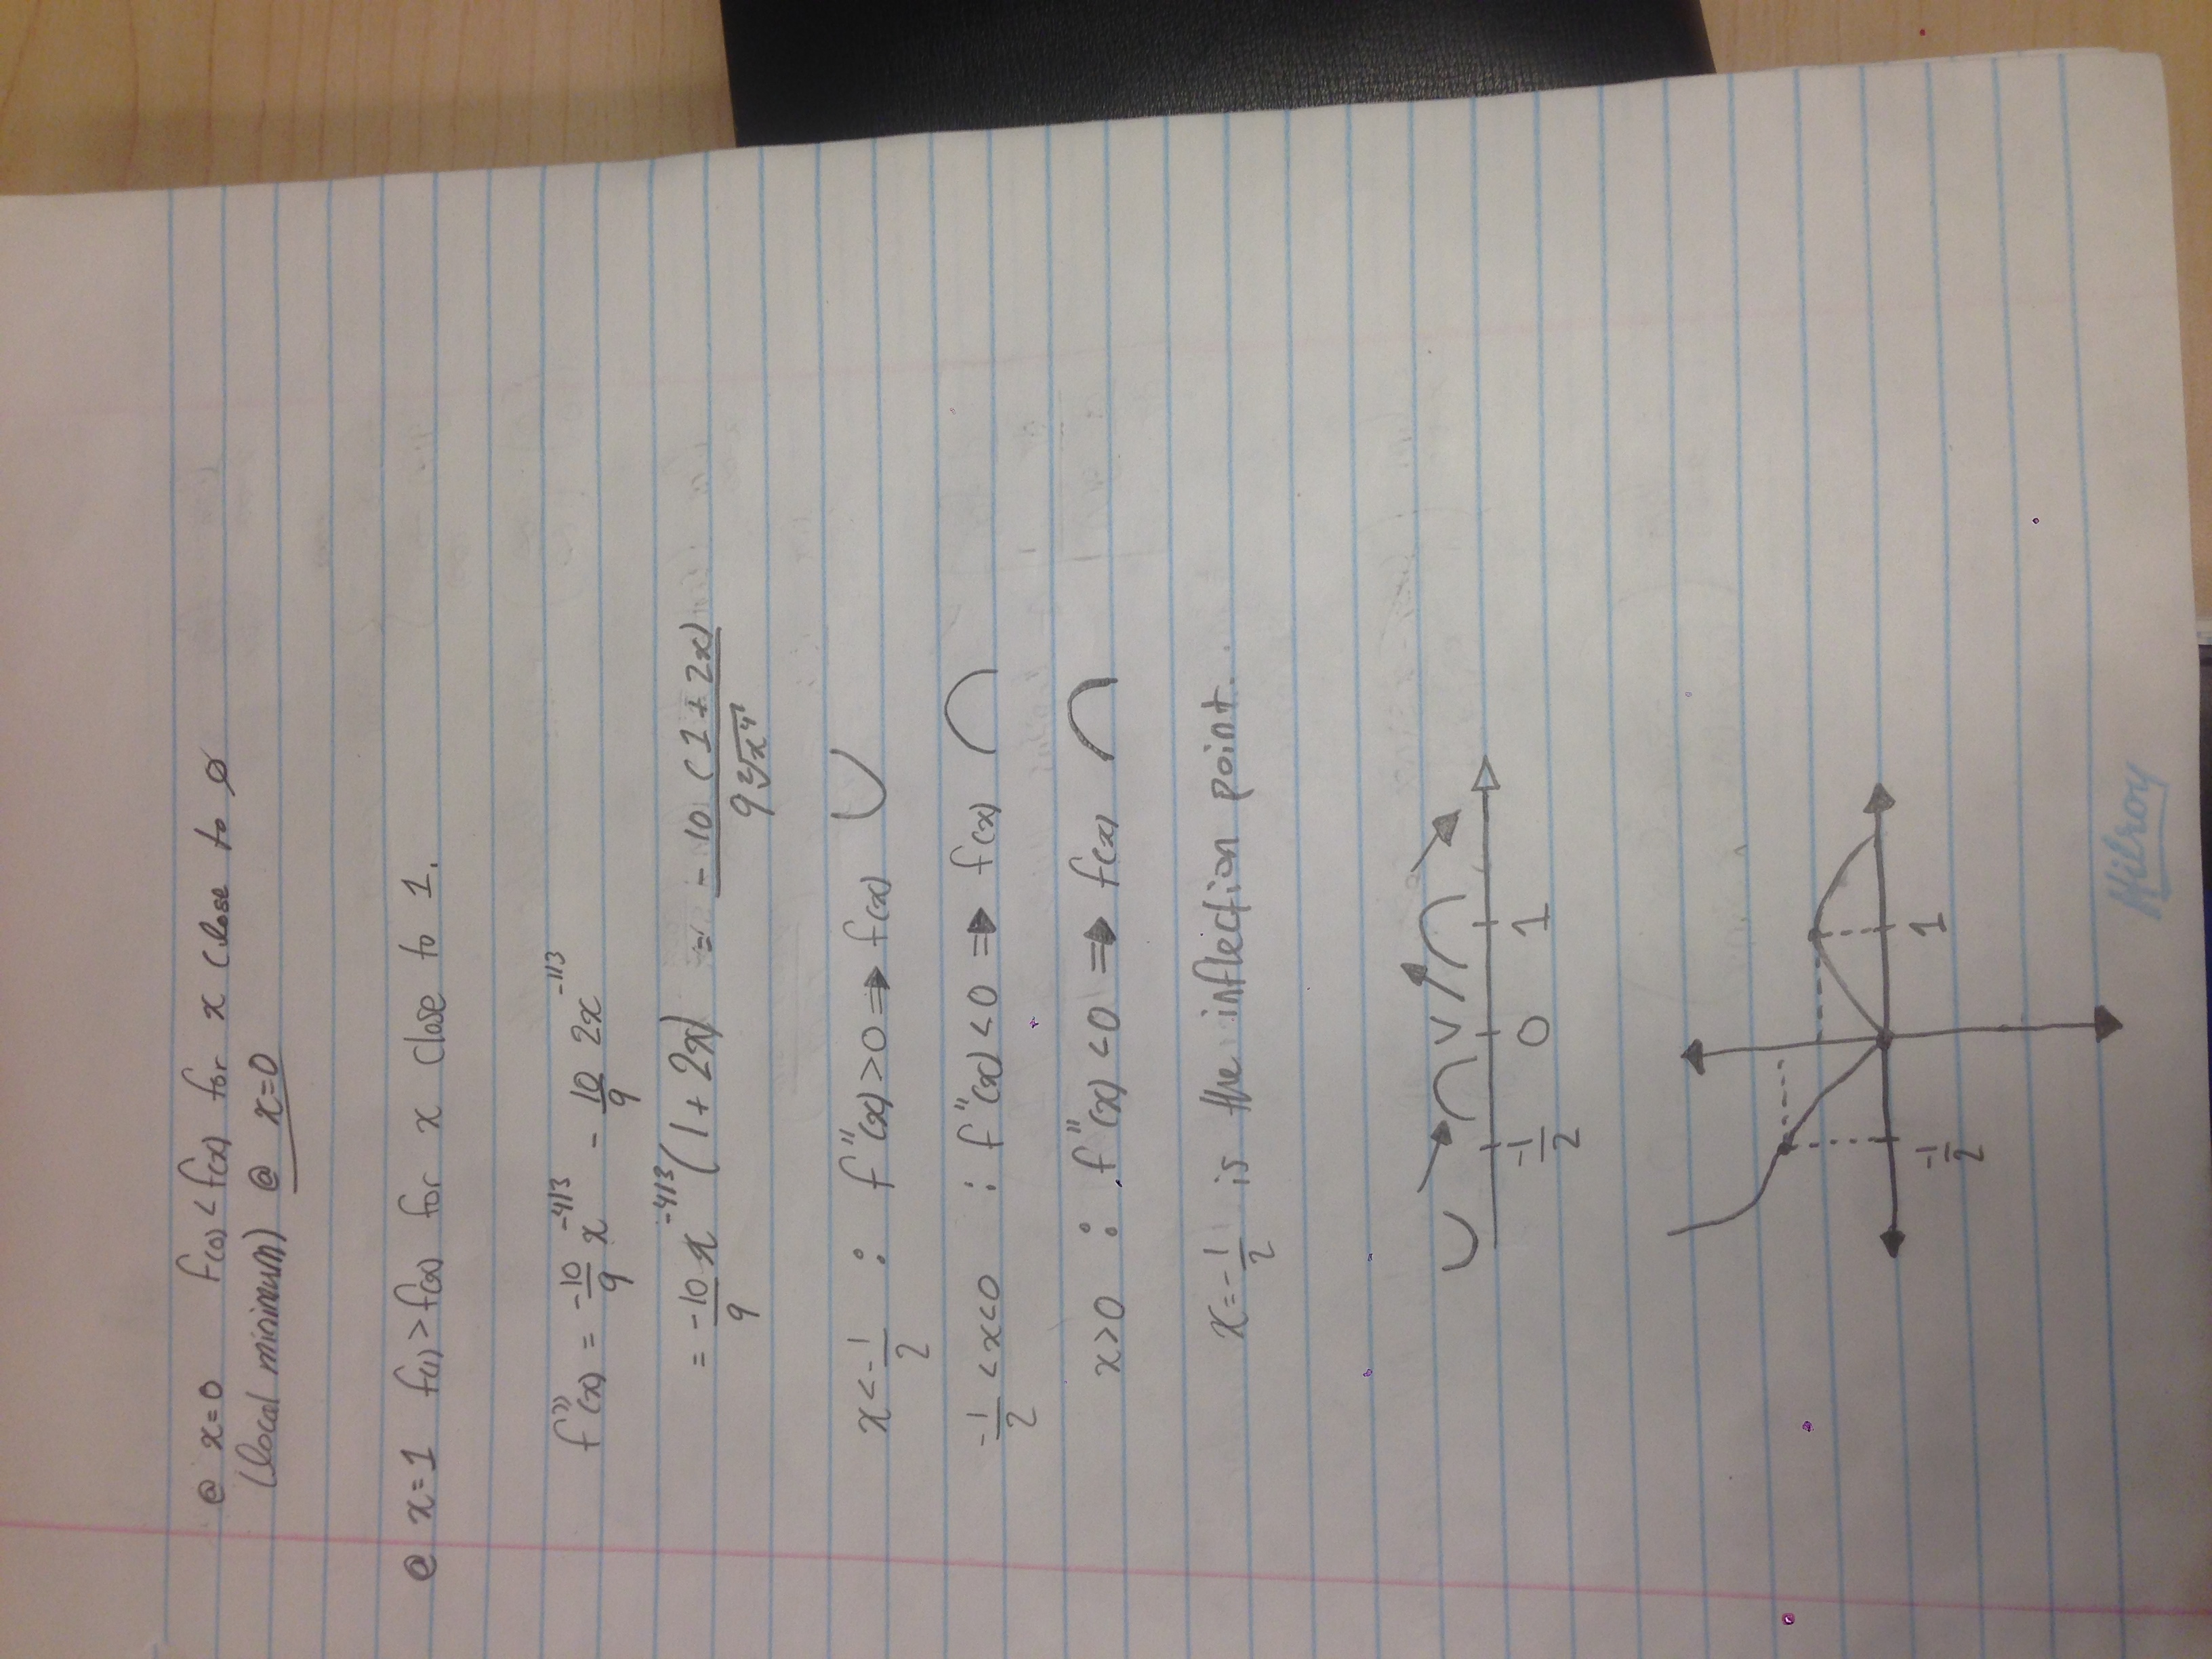 @ x=0 f(0) < f(x) for x close to 0
(local minimum) @ x=0
@ x=1 f(1) > f(x) for x close to 1.
f''(x) = -10/9 x^-4/3 - 10/9 2x^-1/3
= -10/9 x^-4/3 (1 + 2x) = -10 (1 + 2x) / 9 ∛x⁴
x < -1/2 : f''(x) > 0 ⇒ f(x) ∪
-1/2 < x < 0 : f''(x) < 0 ⇒ f(x) ∩
x > 0 : f''(x) < 0 ⇒ f(x) ∩
x = -1/2 is the inflection point.
-1/2 0 1
-1/2 1
Hilroy